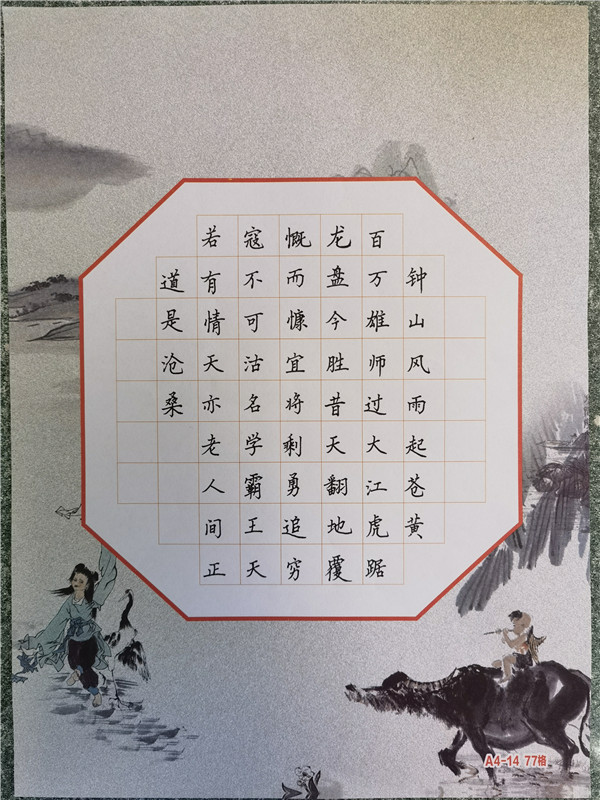 钟山风雨起苍黄
百万雄师过大江虎踞
龙盘今胜昔天翻地覆
慨而慷宜将剩勇追穷
寇不可沽名学霸王天
若有情天亦老人间正
道是沧桑
A4-14 77格